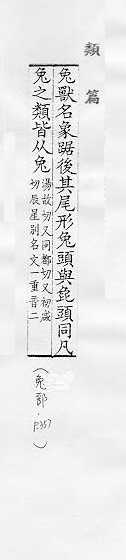 類篇
兔獸名象踞後其尾形兔頭與㲋頭同凡
兔之類皆从兔
湯故切又同都切又初
切辰星別名文一重音二
(兔部·p357)